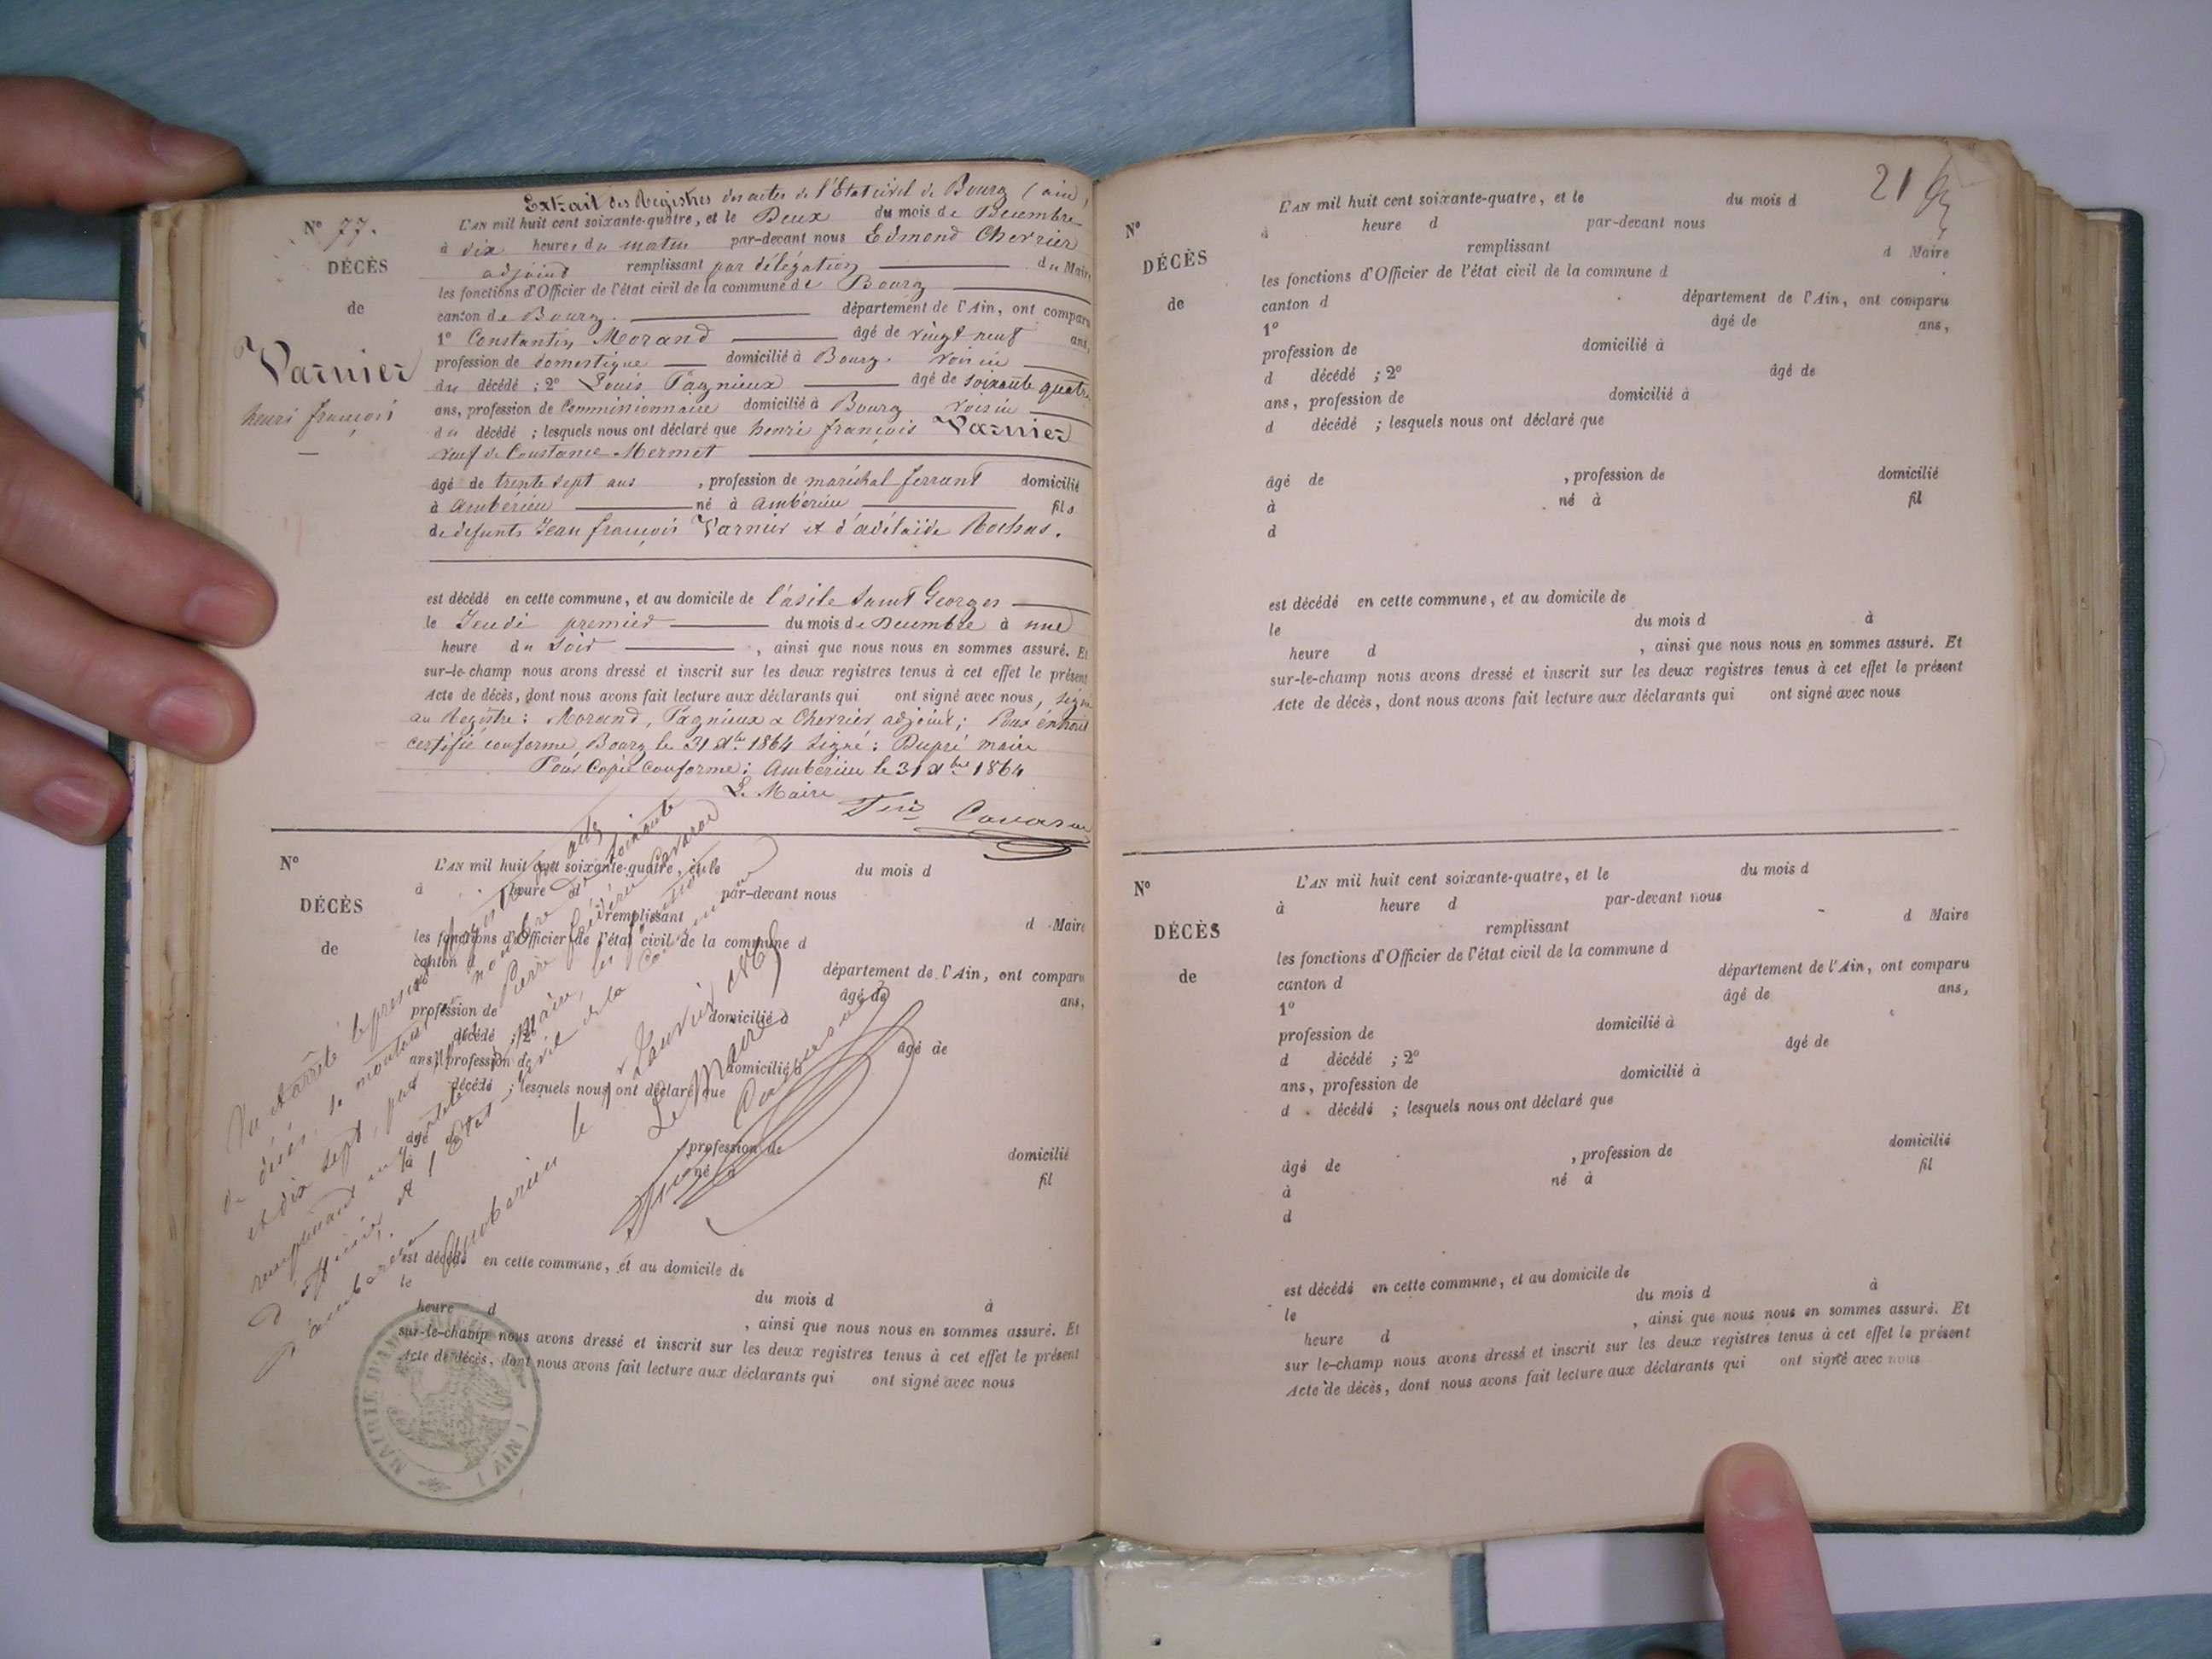 Extrait des Registres des actes de l'Etat civil de Bourg (ain)
N° 77.
DÉCÈS
de
Varnier
henri françois
L'AN mil huit cent soixante-quatre, et le Deux du mois de Décembre
à dix heures du matin par-devant nous Edmond Chevrier
adjoint remplissant par délégation du Maire
les fonctions d'Officier de l'état civil de la commune de Bourg
canton de Bourg. département de l'Ain, ont comparu
1° Constantin Morand âgé de vingt neuf ans,
profession de domestique domicilié à Bourg. voisin
du décédé ; 2° Louis Pagnieux âgé de soixante quatre
ans, profession de Commissionnaire domicilié à Bourg voisin
du décédé ; lesquels nous ont déclaré que henri françois Varnier
veuf de Constance Mermet
âgé de trente sept ans , profession de maréchal ferrant domicilié
à ambérieu né à ambérieu fils
de defunts Jean françois Varnier et d'adélaïde Rochas.
est décédé en cette commune, et au domicile de l'asile Saint Georges
le Jeudi premier du mois de Décembre à une
heure du soir , ainsi que nous nous en sommes assuré. Et
sur-le-champ nous avons dressé et inscrit sur les deux registres tenus à cet effet le présent
Acte de décès, dont nous avons fait lecture aux déclarants qui ont signé avec nous, signé
au Registre : Morand, Pagnieux & Chevrier adjoint ; Pour extrait
certifié conforme, Bourg le 31 Xbre 1864 signé : Dupré maire
Pour Copie Conforme : ambérieu le 31 Xbre 1864
Le Maire
N°
DÉCÈS
de
L'AN mil huit cent soixante-quatre, et le du mois d
à heure d par-devant nous
remplissant d Maire
les fonctions d'Officier de l'état civil de la commune d
canton d département de l'Ain, ont comparu
âgé de ans,
profession de domicilié à
décédé ; 2° âgé de
ans, profession de domicilié à
décédé ; lesquels nous ont déclaré que
âgé de profession de domicilié
à né à fil
est décédé en cette commune, et au domicile de
le du mois d à
heure d , ainsi que nous nous en sommes assuré. Et
sur-le-champ nous avons dressé et inscrit sur les deux registres tenus à cet effet le présent
Acte de décès, dont nous avons fait lecture aux déclarants qui ont signé avec nous
Vu et arrêté le present
de décès, se montant nombre de soixante
et dix sept, par Pierre
remplissant maire, les fonctions
d'officier de l'Etat civil de la Commune
d'ambérieu
Ambérieu le Janvier 1865
Le Maire
MAIRIE D'AMBÉRIEU
(AIN)
21
N°
DÉCÈS
de
L'AN mil huit cent soixante-quatre, et le du mois d
à heure d par-devant nous
remplissant d Maire
les fonctions d'Officier de l'état civil de la commune d
canton d département de l'Ain, ont comparu
1° âgé de ans,
profession de domicilié à
d décédé ; 2° âgé de
ans, profession de domicilié à
d décédé ; lesquels nous ont déclaré que
âgé de , profession de domicilié
à né à fil
d
est décédé en cette commune, et au domicile de
le du mois d à
heure d , ainsi que nous nous en sommes assuré. Et
sur-le-champ nous avons dressé et inscrit sur les deux registres tenus à cet effet le présent
Acte de décès, dont nous avons fait lecture aux déclarants qui ont signé avec nous
N°
DÉCÈS
de
L'AN mil huit cent soixante-quatre, et le du mois d
à heure d par-devant nous
remplissant d Maire
les fonctions d'Officier de l'état civil de la commune d
canton d département de l'Ain, ont comparu
1° âgé de ans,
profession de domicilié à
d décédé ; 2° âgé de
ans, profession de domicilié à
d décédé ; lesquels nous ont déclaré que
âgé de , profession de domicilié
à né à fil
d
est décédé en cette commune, et au domicile de
le du mois d à
heure d , ainsi que nous nous en sommes assuré. Et
sur le-champ nous avons dressé et inscrit sur les deux registres tenus à cet effet le présent
Acte de décès, dont nous avons fait lecture aux déclarants qui ont signé avec nous